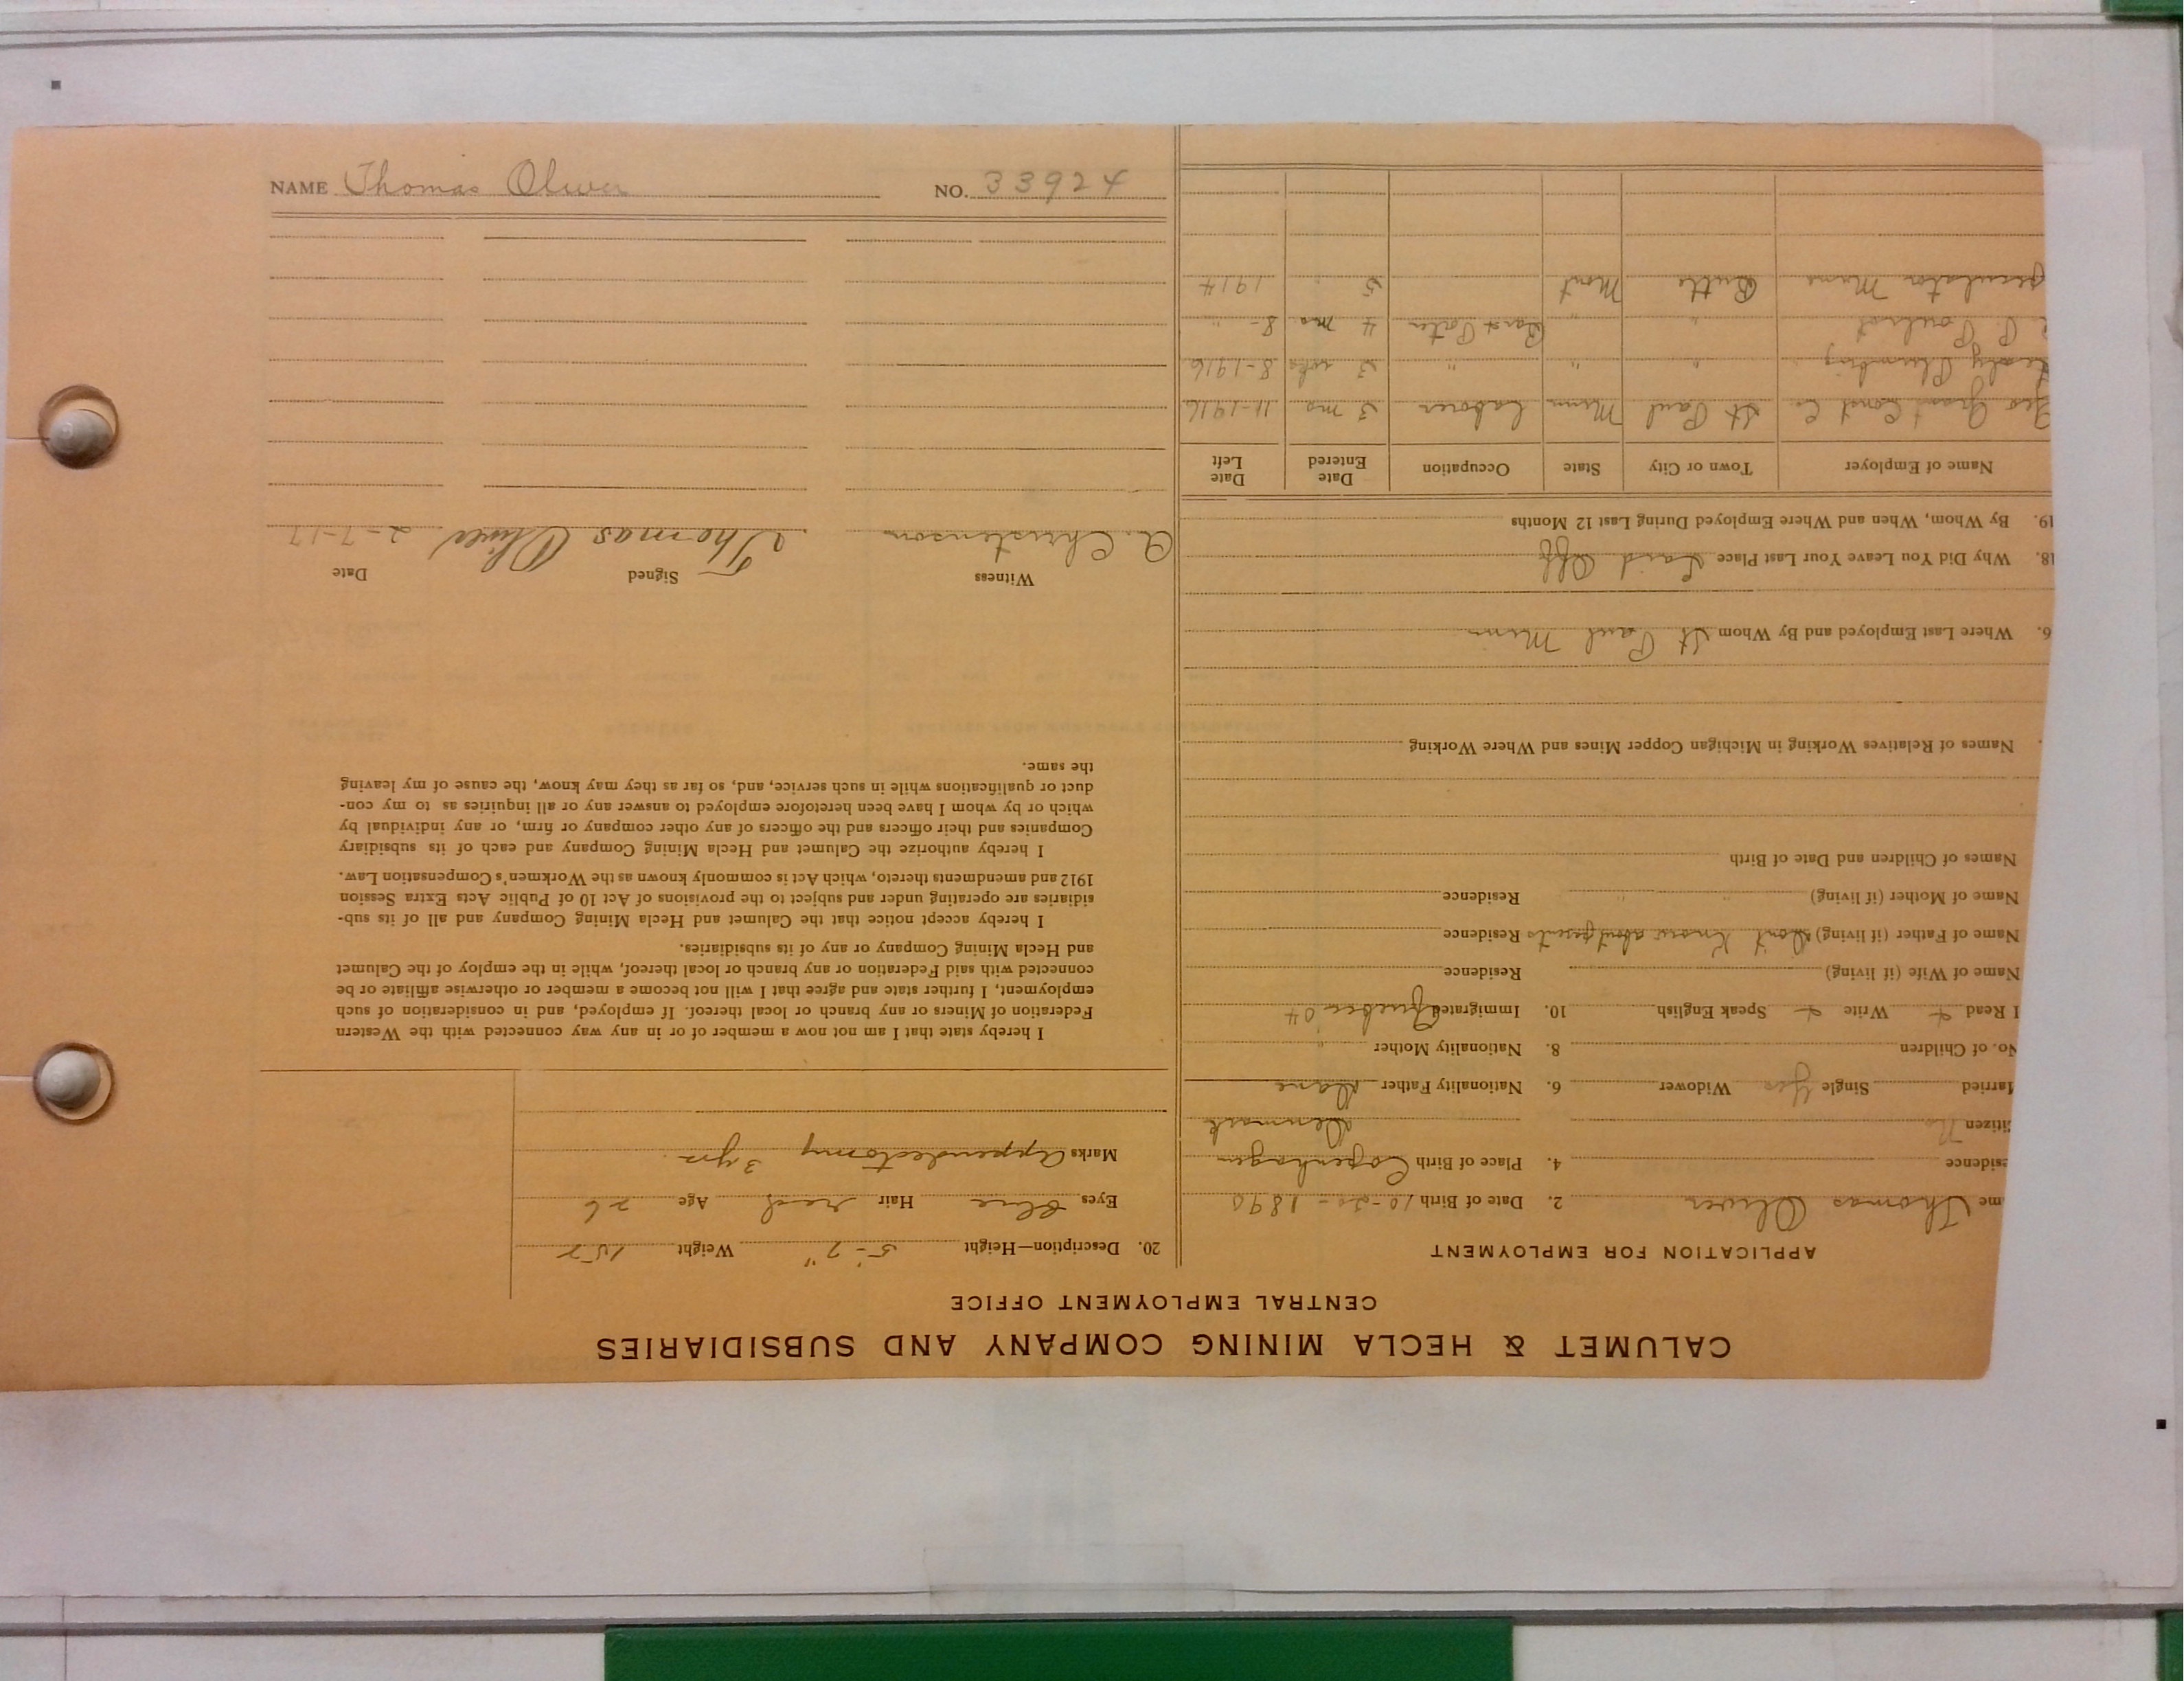 NAME Thomas Oliver NO. 33924
CALUMET & HECLA MINING COMPANY AND SUBSIDIARIES
CENTRAL EMPLOYMENT OFFICE
APPLICATION FOR EMPLOYMENT
me Thomas Oliver 2. Date of Birth 10-20-1890
esidence 4. Place of Birth Copenhagen
itizen No Denmark
Married Single Yes Widower 6. Nationality Father Dane
No. of Children 8. Nationality Mother "
I Read Write Speak English 10. Immigrated Quebec 04
Name of Wife (if living) Residence
Name of Father (if living) Dont Know about parents Residence
Name of Mother (if living) " " Residence
Names of Children and Date of Birth
Names of Relatives Working in Michigan Copper Mines and Where Working
6. Where Last Employed and By Whom St Paul Minn
18. Why Did You Leave Your Last Place Laid Off
19. By Whom, When and Where Employed During Last 12 Months
Name of Employer Town or City State Occupation Date Entered Date Left
Geo Grant Const Co St Paul Minn Laborer 3 mo 11-1916
Plumbing " " " 3 wks 8-1916
P. " " 4 mo 8- "
Speculator Mine Butte Mont 5 " 1914
20. Description—Height 5-7" Weight 157
Eyes Blue Hair red Age 26
Marks Appendectomy 3 yrs
I hereby state that I am not now a member of or in any way connected with the Western
Federation of Miners or any branch or local thereof. If employed, and in consideration of such
employment, I further state and agree that I will not become a member or otherwise affiliate or be
connected with said Federation or any branch or local thereof, while in the employ of the Calumet
and Hecla Mining Company or any of its subsidiaries.
I hereby accept notice that the Calumet and Hecla Mining Company and all of its sub-
sidiaries are operating under and subject to the provisions of Act 10 of Public Acts Extra Session
1912 and amendments thereto, which Act is commonly known as the Workmen's Compensation Law.
I hereby authorize the Calumet and Hecla Mining Company and each of its subsidiary
Companies and their officers and the officers of any other company or firm, or any individual by
which or by whom I have been heretofore employed to answer any or all inquiries as to my con-
duct or qualifications while in such service, and, so far as they may know, the cause of my leaving
the same.
Witness Signed Date
A. Christenson Thomas Oliver 2-7-17